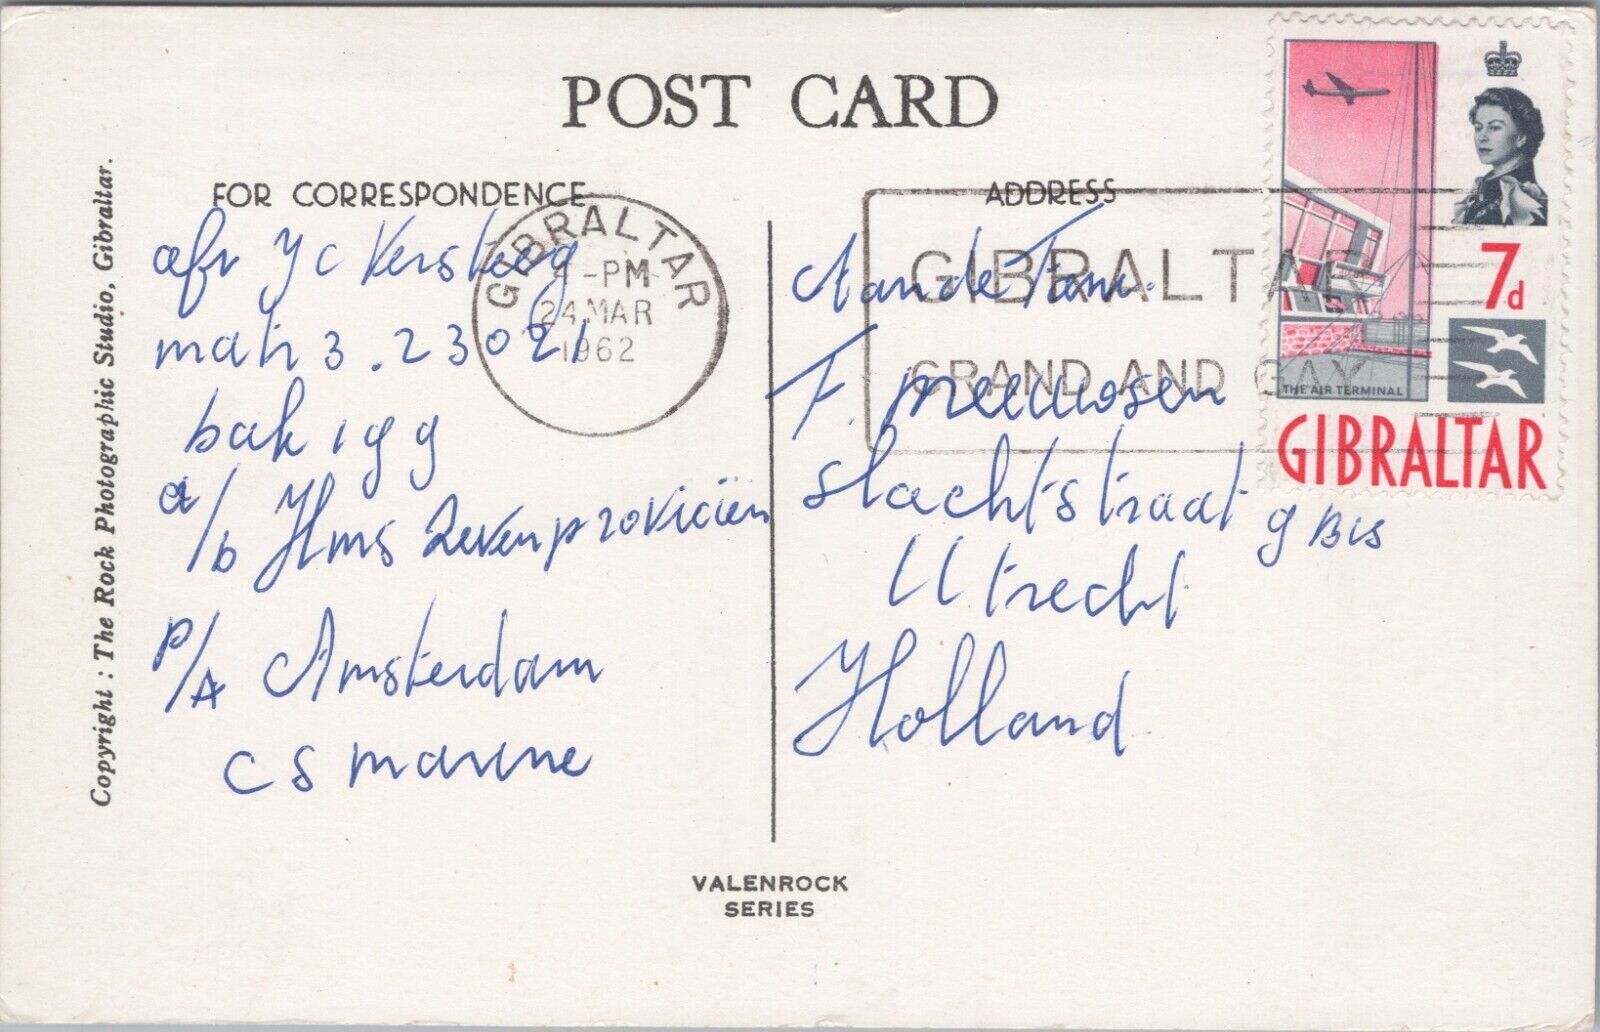 POST CARD
FOR CORRESPONDENCE
ADDRESS
afr J C Kersteeg
matr 3 . 23021
bak 199
a/b Hms Zevenprovinciën
P/A Amsterdam
C S marine
GIBRALTAR
4-PM
24 MAR
1962
GIBRALTAR
GRAND AND GAY
Aan de Fam.
F. Meeuwsen
Slachtstraat 9 BIS
Utrecht
Holland
7d
THE AIR TERMINAL
GIBRALTAR
Copyright : The Rock Photographic Studio, Gibraltar.
VALENROCK
SERIES